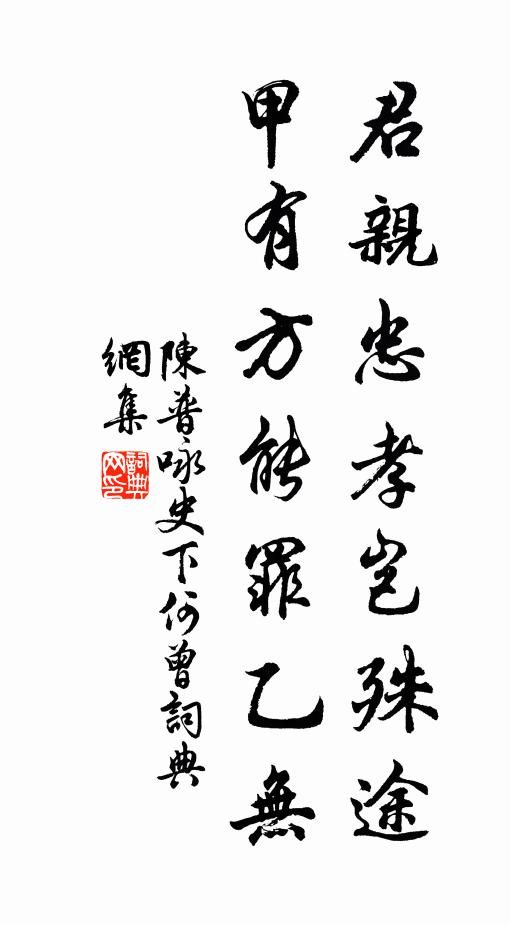 君親忠孝豈殊途
甲有方能罪乙無
陳普咏史下何曾詞典
網集
詞典网印